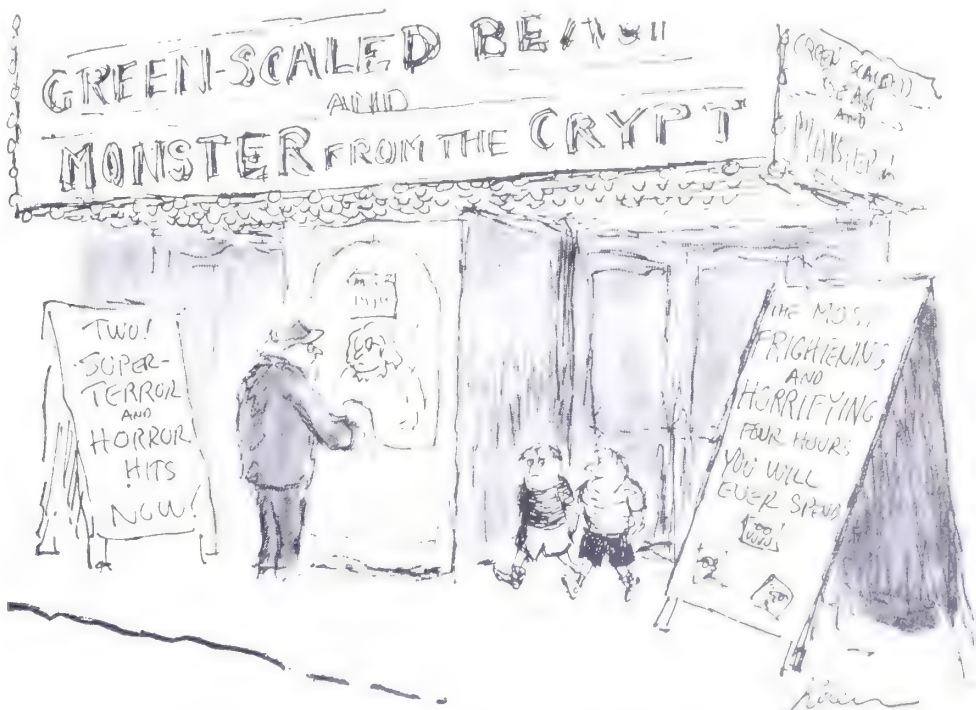 GREEN-SCALED
AND
MONSTER FROM THE CRYPT
GREEN SCALED
AND
TWO!
SUPER-
TERROR
AND
HORROR
HITS
NOW!
THE MOST
FRIGHTENING
AND
HORRIFYING
FOUR HOURS
YOU WILL
EVER SPEND